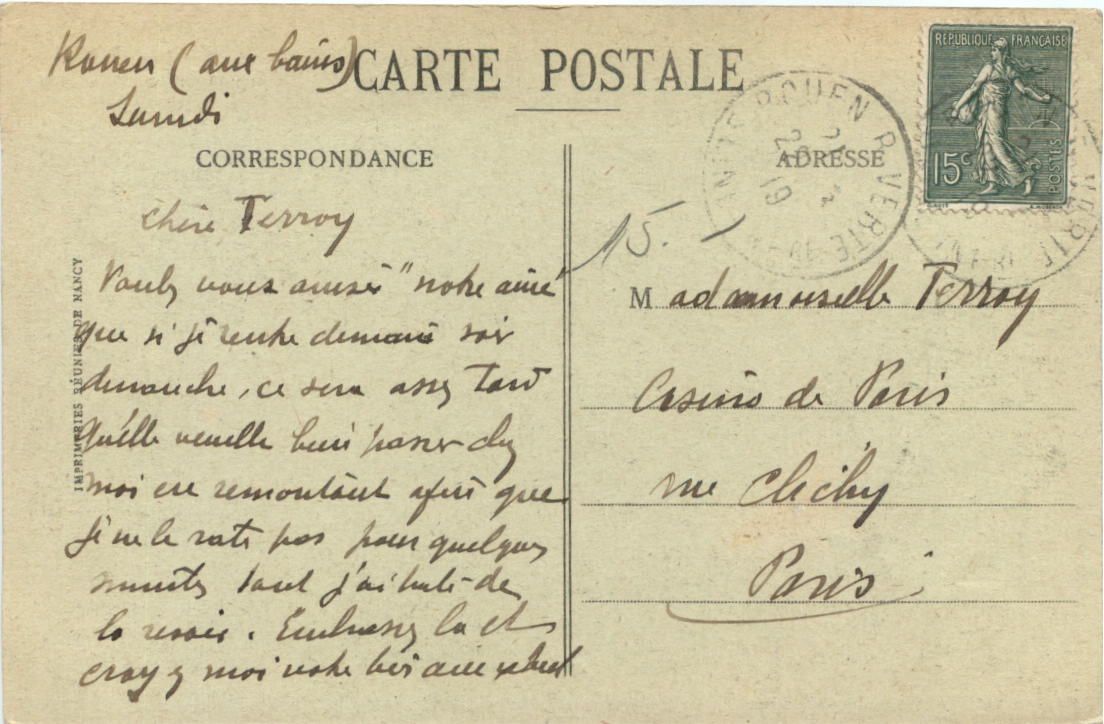 Rouen (aux bains)
Samedi
CARTE POSTALE
CORRESPONDANCE
ADRESSE
Chère Terroy
Voulez vous aviser "notre amie"
que si je rentre demain soir
dimanche, ce sera assez tard
qu'elle veuille bien passer chez
moi en remontant afin que
je ne la rate pas pour quelques
minutes tant j'ai hâte de
la revoir. Embrassez la et
croyez moi votre bien
15.
Mademoiselle Terroy
Casino de Paris
rue Clichy
Paris
REPUBLIQUE FRANÇAISE
15c
POSTES
ROUEN R. VERTE
19
IMPRIMERIES RÉUNIES DE NANCY